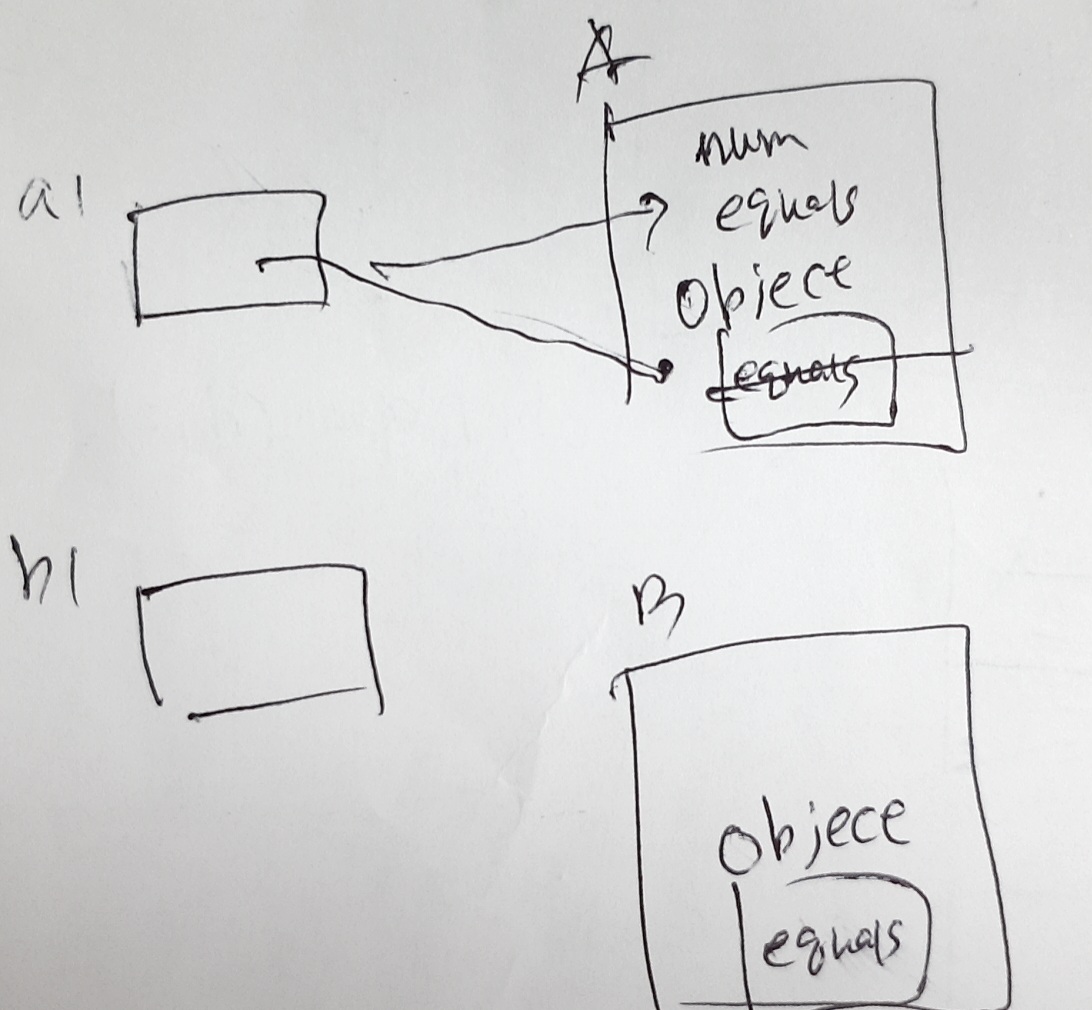 A
num
a1
equals
Objece
equals
b1
B
Objece
equals